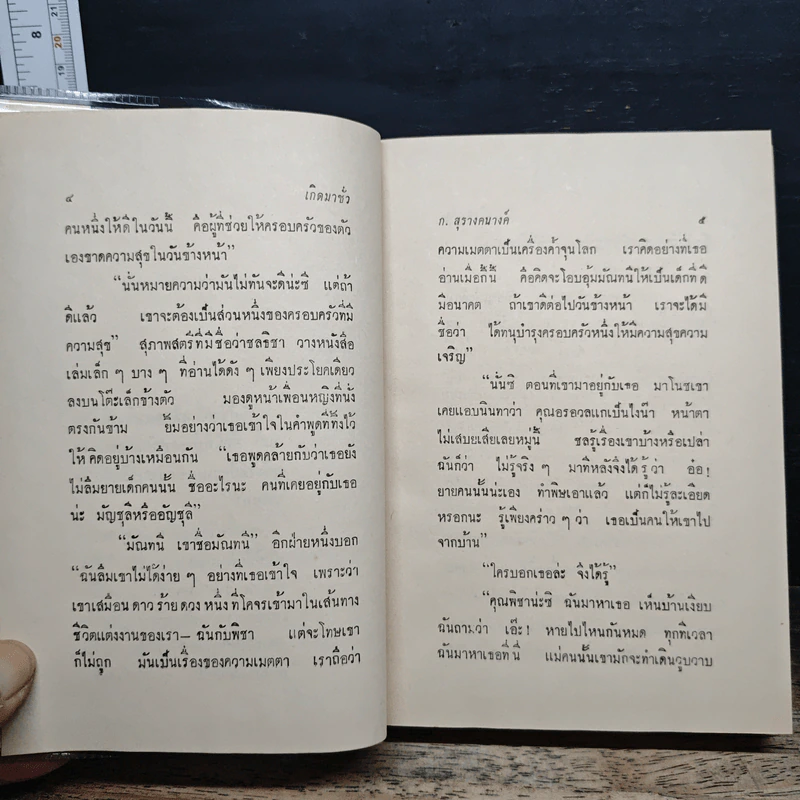 8
21
20
19
๔ เกิดมาชั่ว
คนหนึ่งให้ดีในวันนี้ คือผู้ที่ช่วยให้ครอบครัวของตัว
เองขาดความสุขในวันข้างหน้า”
“นั่นหมายความว่ามันไม่ทันจะดีน่ะซี แต่ถ้า
ดีแล้ว เขาจะต้องเป็นส่วนหนึ่งของครอบครัวที่มี
ความสุข” สุภาพสตรีที่มีชื่อว่าชลธิชา วางหนังสือ
เล่มเล็ก ๆ บาง ๆ ที่อ่านได้ดัง ๆ เพียงประโยคเดียว
ลงบนโต๊ะเล็กข้างตัว มองดูหน้าเพื่อนหญิงที่นั่ง
ตรงกันข้าม ยิ้มอย่างว่าเธอเข้าใจในคำพูดที่ทิ้งไว้
ให้คิดอยู่บ้างเหมือนกัน “เธอพูดคล้ายกับว่าเธอยัง
ไม่ลืมยายเด็กคนนั้น ชื่ออะไรนะ คนที่เคยอยู่กับเธอ
น่ะ มัญชุลีหรืออัญชุลี”
“มัณฑนี เขาชื่อมัณฑนี” อีกฝ่ายหนึ่งบอก
“ฉันลืมเขาไม่ได้ง่าย ๆ อย่างที่เธอเข้าใจ เพราะว่า
เขาเสมือนดาวร้ายดวงหนึ่งที่โคจรเข้ามาในเส้นทาง
ชีวิตแต่งงานของเรา—ฉันกับพิชา แต่จะโทษเขา
ก็ไม่ถูก มันเป็นเรื่องของความเมตตา เราถือว่า
ก. สุรางคนางค์ ๕
ความเมตตาเป็นเครื่องค้ำจุนโลก เราคิดอย่างที่เธอ
อ่านเมื่อกี้นี้ คือคิดจะโอบอุ้มมัณฑนีให้เป็นเด็กที่ดี
มีอนาคต ถ้าเขาดีต่อไปวันข้างหน้า เราจะได้มี
ชื่อว่า ได้ทนุบำรุงครอบครัวหนึ่งให้มีความสุขความ
เจริญ”
“นั่นซิ ตอนที่เขามาอยู่กับเธอ มาโนชเขา
เคยแอบนินทาว่า คุณอรอวลแกเป็นไงน๊า หน้าตา
ไม่เสบยเสียเลยหมู่นี้ ชลรู้เรื่องเขาบ้างหรือเปล่า
ฉันก็ว่า ไม่รู้จริง ๆ มาทีหลังจึงได้รู้ว่า อ๋อ!
ยายคนนั้นน่ะเอง ทำพิษเอาแล้ว แต่ก็ไม่รู้ละเอียด
หรอกนะ รู้เพียงคร่าว ๆ ว่า เธอเป็นคนให้เขาไป
จากบ้าน”
“ใครบอกเธอล่ะ จึงได้รู้”
“คุณพิชาน่ะซิ ฉันมาหาเธอ เห็นบ้านเงียบ
ฉันถามว่า เอ๊ะ! หายไปไหนกันหมด ทุกทีเวลา
ฉันมาหาเธอที่นี่ แม่คนนั้นเขามักจะทำเดินวูบวาบ